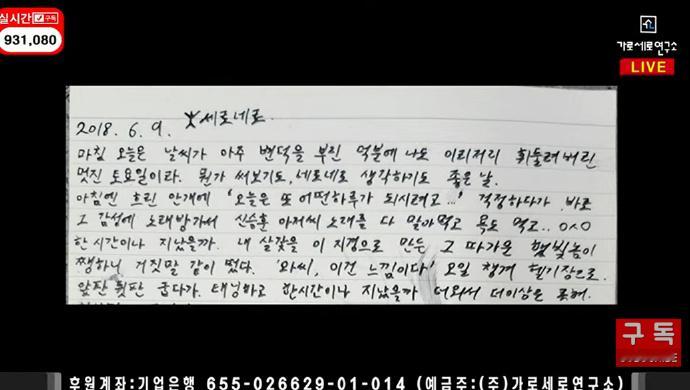 실시간 구독
931,080
가로세로연구소
LIVE
2018. 6. 9. 세로네로.
마침 오늘은 날씨가 아주 변덕을 부린 덕분에 나도 이리저리 휘둘려버린
멋진 토요일이라. 뭔가 써보기도, 네로네로 생각하기도 좋은 날.
아침엔 흐린 안개에 '오늘은 또 어떤하루가 되시려고...' 걱정하다가 바로
그 감성에 노래방가서 신승훈 아저씨 노래를 다 말아먹고 욕도 먹고.. ㅇㅅㅇ
한 시간이나 지났을까. 내 살갗을 이 지경으로 만든 그 따가운 햇빛놈이
쨍하니 거짓말 같이 떴다. '와씨, 이건 느낌이다' 오일 챙겨 헬기장으로.
앞판 뒷판 굽다가. 태닝하고 한시간이나 지났을까 더워서 더이상은 못해.
구독
후원계좌:기업은행 655-026629-01-014 (예금주:(주)가로세로연구소)